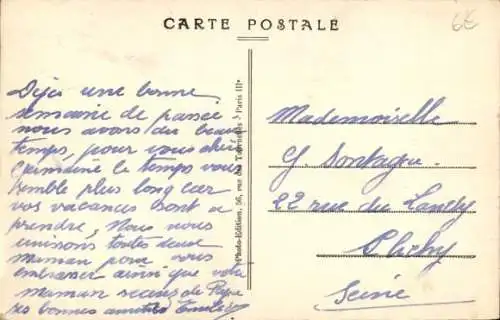 CARTE POSTALE
6€
Déjà une bonne
semaine de passée
nous avons du beau
temps, pour vous
le temps vous
semble plus long car
vos vacances sont à
prendre, Nous nous
unissons toutes deux
maman pour vous
embrasser ainsi que votre
maman
ses bonnes amitiés
Photo-Edition, 56, rue des Tournelles - Paris III
Mademoiselle
G.
22 rue du
Clichy
Seine